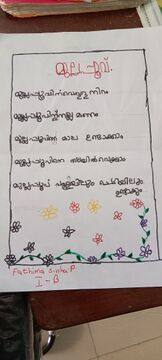 മുല്ലപ്പൂവ്.
മുല്ലപ്പൂവിന് വെള്ള നിറം
മുല്ലപ്പൂവിന് നല്ല മണം
മുല്ലപ്പൂവിനെ മാല ഉണ്ടാക്കാം
മുല്ലപ്പൂവിനെ തലയിൽ വെക്കാം
മുല്ലപ്പൂവ് പള്ളിയിലും ചെടിയിലും
ഉണ്ടാകും
Fathima sinha.P
I-B